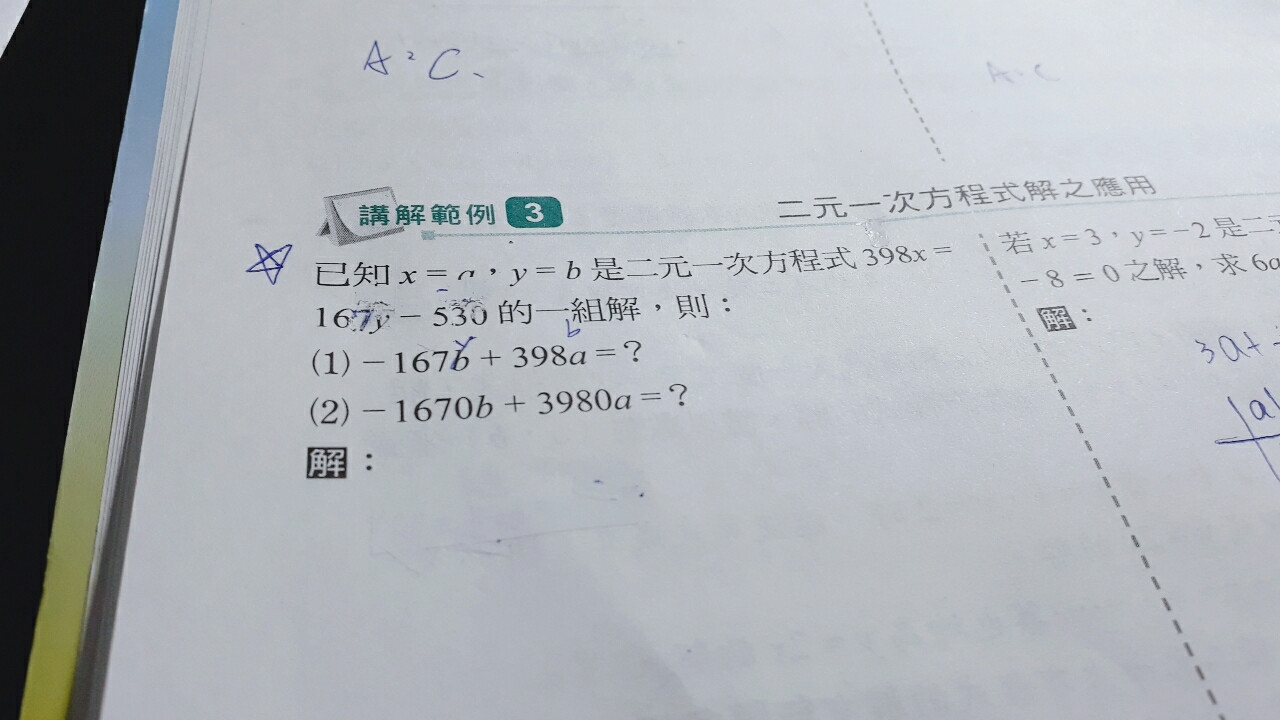 A、C、
A、C
講解範例 3
二元一次方程式解之應用
已知 x = a，y = b 是二元一次方程式 398x =
167y − 530 的一組解，則：
b
(1) − 167b + 398a = ?
(2) − 1670b + 3980a = ?
解：
若 x = 3，y = −2 是二
− 8 = 0 之解，求 6a
解：
3a+
a